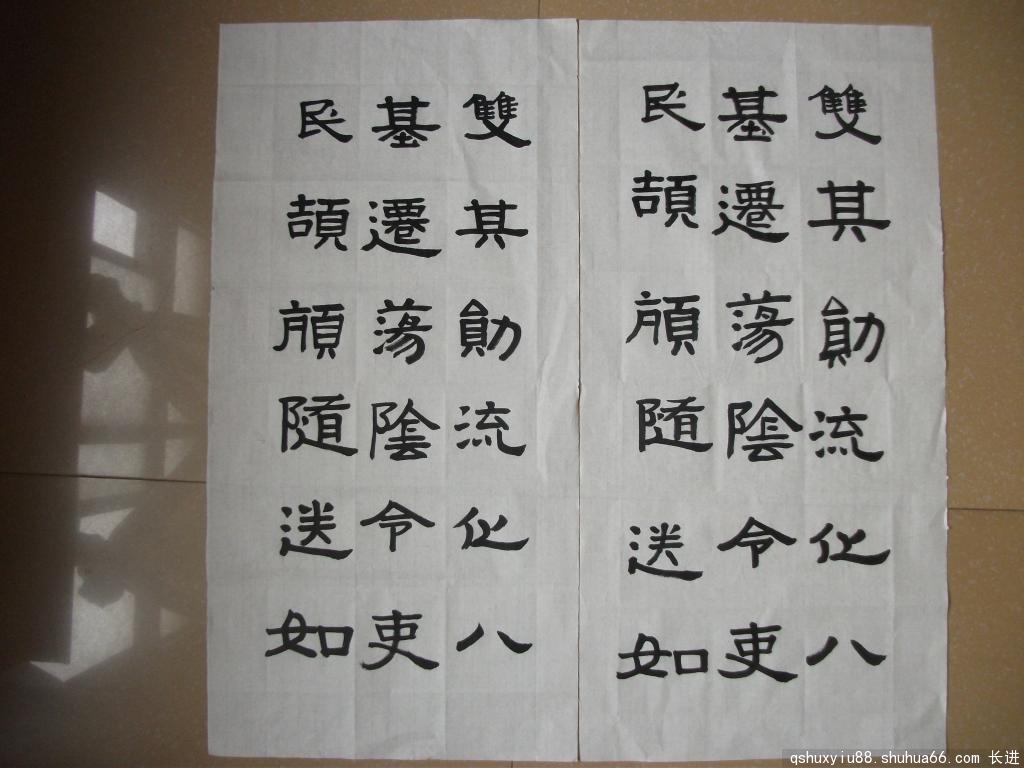 雙其勛流化八
基遷蕩陰令吏
民頡頏隨送如
雙其勛流化八
基遷蕩陰令吏
民頡頏隨送如
qshuxyiu88.shuhua66.com 长进